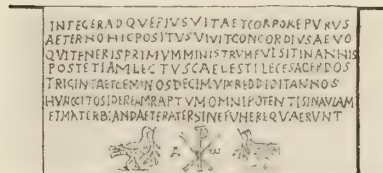 INTEGER ADQVE PIVS VITA ET CORPORE PVRVS
AETERNO HIC POSITVS VIVIT CONCORDIVS AEVO
QVI TENERIS PRIMVM MINISTRVM FVLSIT IN ANNIS
POST ETIAM LECTVS CAELESTI LEGE SACERDOS
TRIGINTA ET GEMINOS DECIM VIX REDDIDIT ANNOS
HVNC CITO SIDEREAM RAPTVM OMNIPOTENTIS IN AVLAM
ET MATER BLANDA ET FRATER SINE FVNERE QVAERVNT